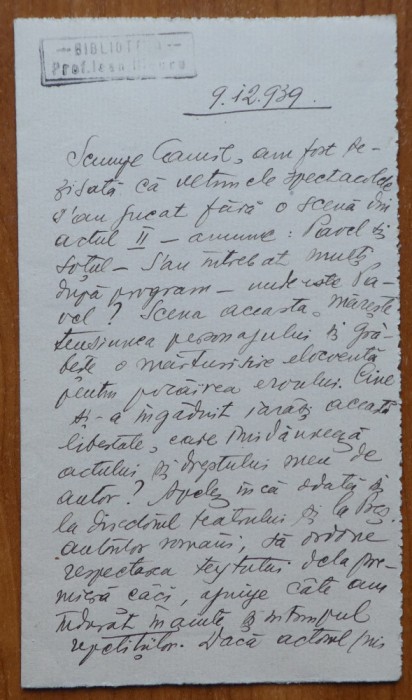 BIBLIOTECA
Prof. Ioan
9.12.939
Scumpe Camil, am fost se-
sisată că ultimele spectacole
s'au jucat fără o scenă din
actul II – anume: Pavel și
soțul – S'au întrebat mulți
după program – unde este Pa-
vel? Scena aceasta, mărește
tensiunea personajului și gră-
bește o mărturisire elocventă
pentru eroului. Cine
și-a îngăduit iarăși această
libertate, care
actului și dreptului meu de
autor? Apelez încă odată și
la directorul teatrului și la Preș.
autorilor români, să ordone
respectarea textului dela pre-
mieră căci, ajunge câte am
îndurat înainte și in timpul
repetițiilor. Dacă actorul